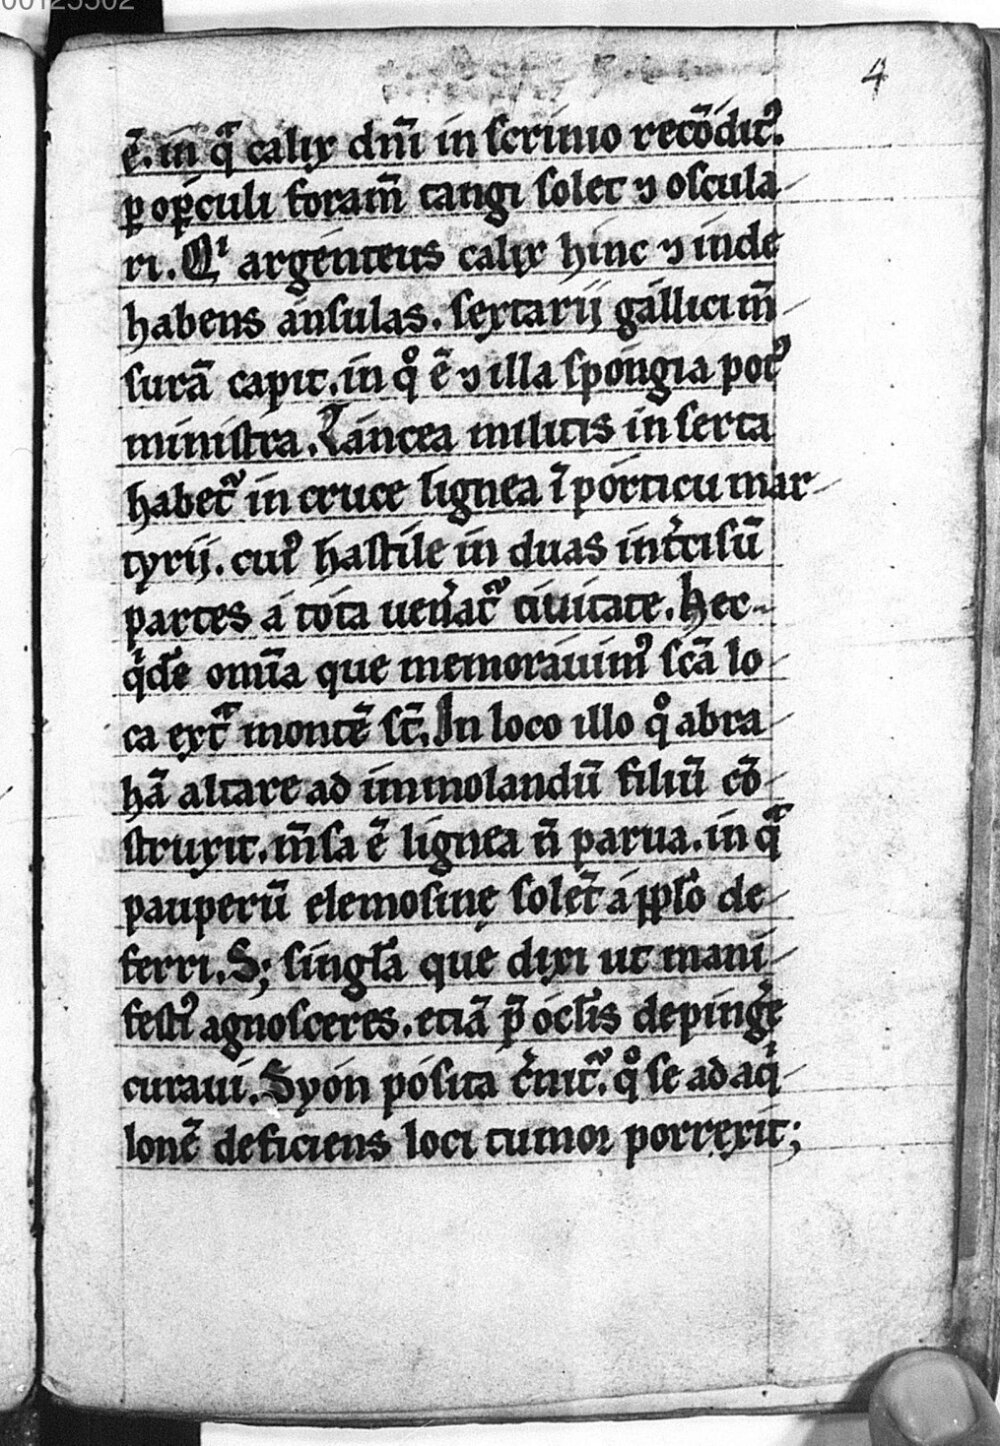 00125502
4
ē. in qͣ calix dn̄i in scrinio recōditꝰ.
ꝑ oꝑculi foram̄ tangi solet ⁊ oscula
ri. Qⁱ argenteus calix hinc ⁊ inde
habens ansulas. sextarij gallici m̄
surā capit. in qͦ ē ⁊ illa spongia potꝰ
ministra. Lancea militis in serta
habet᷑ in cruce lignea ī porticu mar
tyrij. cuiꝰ hastile in duas int̓cisū
partes a tota uen̓at᷑ ciuitate. Hec
qͥdē om̄ia que memorauimꝰ sc̄a lo
ca extͣ montē st̄. In loco illo qͦ abra
hā altare ad immolandū filiū cō
struxit. m̄sa ē lignea n̄ parua. in qͣ
pauperū elemosinę solet᷑ a pp̄lo de
ferri. S; singl̄a que dixi ut mani
festiꝰ agnosceres. etiā p̄ ocl̄is deping̓e
curaui. Syon posita c̓nit᷑. qͦ se ad aqͥ
lonē deficiens loci tumor porrexit;